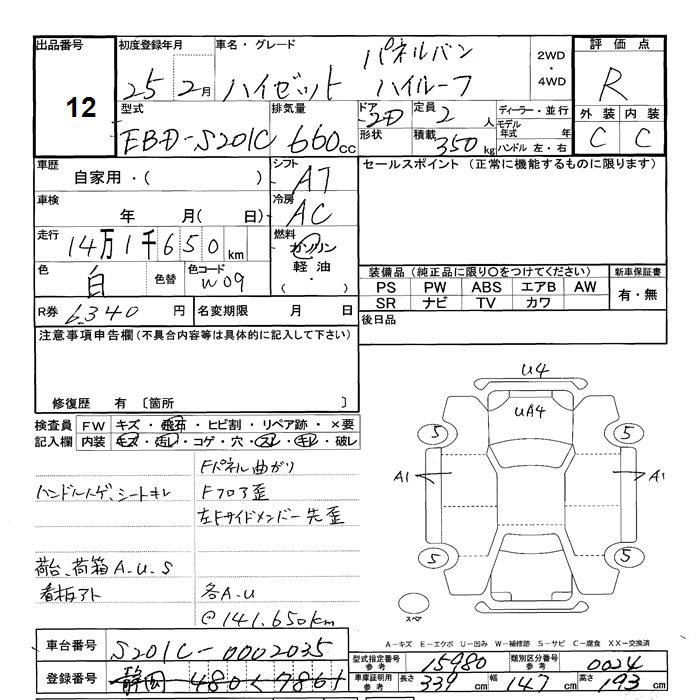 出品番号
12
初度登録年月
25 2月
車名・グレード
ハイゼット パネルバン ハイルーフ
2WD ・ 4WD
評価点
R
外装 内装
C C
型式
EBD-S201C
排気量
660cc
ドア 2D
形状
定員 2人
積載 350kg
ディーラー・並行
モデル年式 年
ハンドル 左・右
車歴
自家用・( )
シフト
AT
車検
年 月( 日)
冷房
AC
走行
14万1千650km
燃料
ガソリン
軽油・
色
白
色替
色コード
W09
R券 6,340円
名変期限 月 日
セールスポイント (正常に機能するものに限ります)
装備品 (純正品に限り○をつけてください)
PS PW ABS エアB AW
SR ナビ TV カワ
新車保証書
有・無
後日品
注意事項申告欄(不具合内容等は具体的に記入して下さい)
修復歴 有 〔箇所 〕
検査員記入欄
FW キズ・飛石・ヒビ割・リペア跡・×要
内装 キズ・汚レ・コゲ・穴・スレ・キレ・破レ
Fパネル曲がり
ハンドルハゲ、シートキレ
Fフロア歪
左Fサイドメンバー先歪
荷台、荷箱A.U.S
看板アト
各A.U
@141.650km
U4
UA4
5 5
A1 A1
5 5
スペア
A-キズ E-エクボ U-凹み W-補修跡 S-サビ C-腐食 XX-交換済
車台番号
S201C-0002035
登録番号
静岡 480 く 7861
型式指定番号 参考
15980
類別区分番号 参考
0024
車庫証明用 参考
長さ 339cm
幅 147cm
高さ 193cm